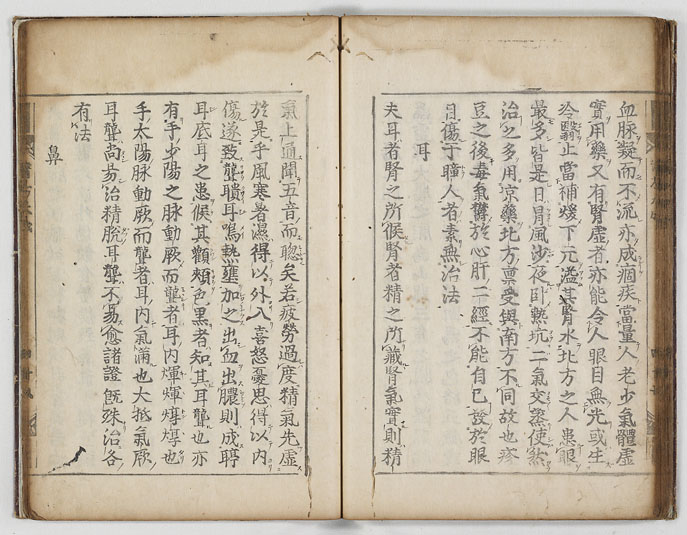 血脉凝而不流亦成痼疾當量人老少氣體虛
實用藥又有腎虛者亦能令人眼目無光或生
冷翳止當補煖下元滋其腎水北方之人患眼
最多皆是日冒風沙夜臥熱坑二氣交蒸使然
治之多用凉藥北方禀受與南方不同故也疹
豆之後毒氣欝於心肝二經不能自已發於眼
目傷于瞳人者素無治法
耳
夫耳者腎之所候腎者精之所藏腎氣實則精
氣上通聞五音而聦矣若疲勞過度精氣先虛
於是乎風寒暑濕得以外入喜怒憂思得以內
傷遂致聾聵耳鳴熱壅加之出血出膿則成聤
耳底耳之患候其顴頰色黑者知其耳聾也亦
有手少陽之脉動厥而聾者耳内煇煇焞焞也
手太陽脉動厥而聾者耳内氣滿也大抵氣厥
耳聾尚易治精脫耳聾不易愈諸證旣殊治各
有法
鼻